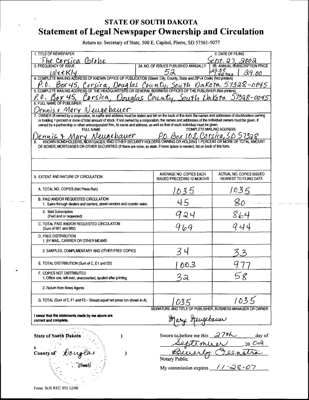 STATE OF SOUTH DAKOTA
Statement of Legal Newspaper Ownership and Circulation
Return to: Secretary of State, 500 E. Capitol, Pierre, SD 57501-5077
1. TITLE OF NEWSPAPER
The Corsica Globe
2. DATE OF FILING
Sept. 27, 2002
3. FREQUENCY OF ISSUE
Weekly
3A. NO. OF ISSUES PUBLISHED ANNUALLY
52
3B. ANNUAL SUBSCRIPTION PRICE
29.00
4. COMPLETE MAILING ADDRESS OF KNOWN OFFICE OF PUBLICATION (Street, City, County, State and ZIP+4 Code) (Not printers)
P.O. Box 45, Corsica, Douglas County, South Dakota 57328-0045
5. COMPLETE MAILING ADDRESS OF THE HEADQUARTERS OR GENERAL BUSINESS OFFICES OF THE PUBLISHER (Not printers)
P.O. Box 45, Corsica, Douglas County, South Dakota 57328-0045
6. FULL NAME OF PUBLISHER
Dennis & Mary Neugebauer
7. OWNER (If owned by a corporation, its name and address must be stated and
FULL NAME
COMPLETE MAILING ADDRESS
Dennis & Mary Neugebauer
PO Box 108, Corsica, SD 57328
8. KNOWN BONDHOLDERS, MORTGAGES, AND OTHER SECURITY HOLDERS OWNING OR HOLDING 1 PERCENT OR MORE OF TOTAL AMOUNT
OF BONDS, MORTGAGES OR OTHER SECURITIES (If there are none, so state).
9. EXTENT AND NATURE OF CIRCULATION
AVERAGE NO. COPIES EACH ISSUED PRECEDING 12 MONTHS
ACTUAL NO. COPIES ISSUED NEAREST TO FILING DATE
A. TOTAL NO. COPIES (Net Press Run)
1035 1035
B. PAID AND/OR REQUESTED CIRCULATION
1. Sales through dealers and carriers, street vendors and counter sales
45 80
2. Mail Subscription
(Paid and or requested)
924 864
C. TOTAL PAID AND/OR REQUESTED CIRCULATION
(Sum of 9B1 and 9B2)
969 944
D. FREE DISTRIBUTION
1. BY MAIL, CARRIER OR OTHER MEANS
2. SAMPLES, COMPLIMENTARY AND OTHER FREE COPIES
34 33
E. TOTAL DISTRIBUTION (Sum of C, D1 and D2)
1003 977
F. COPIES NOT DISTRIBUTED
1. Office use, left over, unaccounted, spoiled after printing
32 58
2. Return from News Agents
G. TOTAL (Sum of E, F1 and F2 - Should equal net press run shown in A)
1035 1035
I swear that the statements made by me above are
correct and complete.
SIGNATURE AND TITLE OF PUBLISHER, BUSINESS MANAGER OR OWNER
Mary Neugebauer
State of South Dakota
County of Douglas
(Seal)
Sworn to before me this 27th day of
September
Notary Public
My commission expires 11-28-07
Form: SOS REC 051 02/00